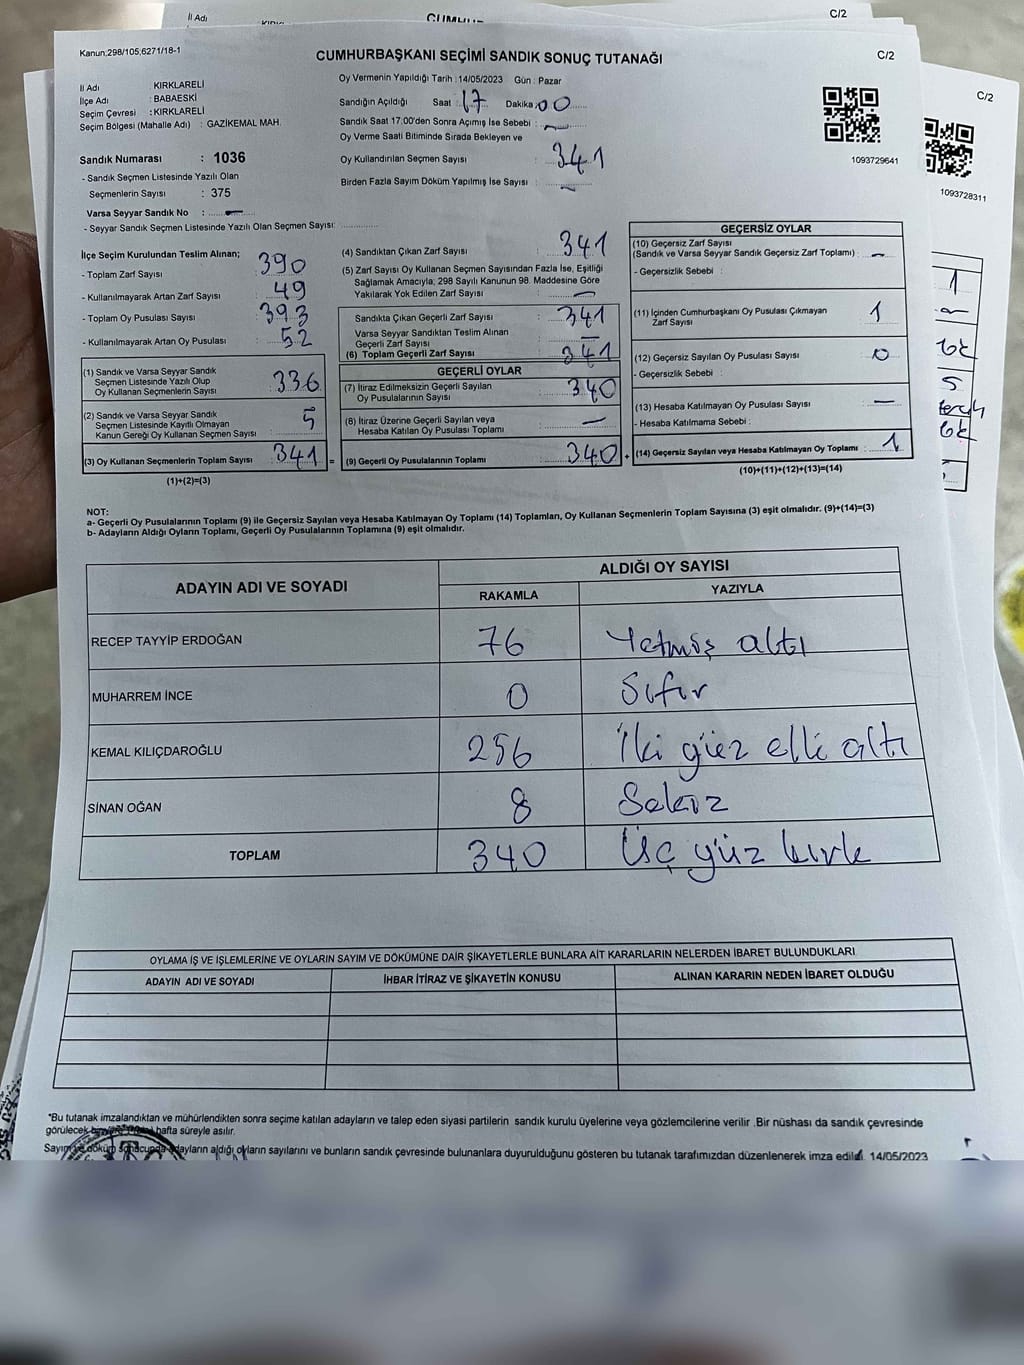 İl Adı
C/2
Kanun,298/105;6271/18-1
CUMHURBAŞKANI SEÇİMİ SANDIK SONUÇ TUTANAĞI
C/2
C/2
İl Adı KIRKLARELİ
İlçe Adı : BABAESKİ
Seçim Çevresi : KIRKLARELİ
Seçim Bölgesi (Mahalle Adı) : GAZİKEMAL MAH.
Sandık Numarası : 1036
- Sandık Seçmen Listesinde Yazılı Olan
Seçmenlerin Sayısı : 375
Varsa Seyyar Sandık No : -
- Seyyar Sandık Seçmen Listesinde Yazılı Olan Seçmen Sayısı:
Oy Vermenin Yapıldığı Tarih :14/05/2023 Gün : Pazar
Sandığın Açıldığı Saat : 17 Dakika: 00
Sandık Saat 17:00'den Sonra Açımış İse Sebebi : -
Oy Verme Saati Bitiminde Sırada Bekleyen ve
Oy Kullandırılan Seçmen Sayısı : 341
Birden Fazla Sayım Döküm Yapılmış İse Sayısı : -
1093729641
1093728311
İlçe Seçim Kurulundan Teslim Alınan;
- Toplam Zarf Sayısı : 390
- Kullanılmayarak Artan Zarf Sayısı : 49
- Toplam Oy Pusulası Sayısı : 393
- Kullanılmayarak Artan Oy Pusulası : 52
(1) Sandık ve Varsa Seyyar Sandık
Seçmen Listesinde Yazılı Olup
Oy Kullanan Seçmenlerin Sayısı : 336
(2) Sandık ve Varsa Seyyar Sandık
Seçmen Listesinde Kayıtlı Olmayan
Kanun Gereği Oy Kullanan Seçmen Sayısı : 5
(3) Oy Kullanan Seçmenlerin Toplam Sayısı : 341 =
(1)+(2)=(3)
(4) Sandıktan Çıkan Zarf Sayısı : 341
(5) Zarf Sayısı Oy Kullanan Seçmen Sayısından Fazla İse, Eşitliği
Sağlamak Amacıyla, 298 Sayılı Kanunun 98. Maddesine Göre
Yakılarak Yok Edilen Zarf Sayısı : -
Sandıkta Çıkan Geçerli Zarf Sayısı : 341
Varsa Seyyar Sandıktan Teslim Alınan
Geçerli Zarf Sayısı : -
(6) Toplam Geçerli Zarf Sayısı : 341
GEÇERLİ OYLAR
(7) İtiraz Edilmeksizin Geçerli Sayılan
Oy Pusulalarının Sayısı : 340
(8) İtiraz Üzerine Geçerli Sayılan veya
Hesaba Katılan Oy Pusulası Toplamı : -
(9) Geçerli Oy Pusulalarının Toplamı : 340 +
GEÇERSİZ OYLAR
(10) Geçersiz Zarf Sayısı
(Sandık ve Varsa Seyyar Sandık Geçersiz Zarf Toplamı) : -
- Geçersizlik Sebebi :
(11) İçinden Cumhurbaşkanı Oy Pusulası Çıkmayan
Zarf Sayısı : 1
(12) Geçersiz Sayılan Oy Pusulası Sayısı : 0
- Geçersizlik Sebebi :
(13) Hesaba Katılmayan Oy Pusulası Sayısı : -
- Hesaba Katılmama Sebebi :
(14) Geçersiz Sayılan veya Hesaba Katılmayan Oy Toplamı : 1
(10)+(11)+(12)+(13)=(14)
NOT:
a- Geçerli Oy Pusulalarının Toplamı (9) ile Geçersiz Sayılan veya Hesaba Katılmayan Oy Toplamı (14) Toplamları, Oy Kullanan Seçmenlerin Toplam Sayısına (3) eşit olmalıdır. (9)+(14)=(3)
b- Adayların Aldığı Oyların Toplamı, Geçerli Oy Pusulalarının Toplamına (9) eşit olmalıdır.
ADAYIN ADI VE SOYADI ALDIĞI OY SAYISI
RAKAMLA YAZIYLA
RECEP TAYYİP ERDOĞAN 76 Yetmiş altı
MUHARREM İNCE 0 Sıfır
KEMAL KILIÇDAROĞLU 256 İki yüz elli altı
SİNAN OĞAN 8 Sekiz
TOPLAM 340 Üç yüz kırk
OYLAMA İŞ VE İŞLEMLERİNE VE OYLARIN SAYIM VE DÖKÜMÜNE DAİR ŞİKAYETLERLE BUNLARA AİT KARARLARIN NELERDEN İBARET BULUNDUKLARI
ADAYIN ADI VE SOYADI İHBAR İTİRAZ VE ŞİKAYETİN KONUSU ALINAN KARARIN NEDEN İBARET OLDUĞU
*Bu tutanak imzalandıktan ve mühürlendikten sonra seçime katılan adayların ve talep eden siyasi partilerin sandık kurulu üyelerine veya gözlemcilerine verilir .Bir nüshası da sandık çevresinde
görülecek hafta süreyle asılır.
Sayım ve döküm sonucunda adayların aldığı oyların sayılarını ve bunların sandık çevresinde bulunanlara duyurulduğunu gösteren bu tutanak tarafımızdan düzenlenerek imza edildi. 14/05/2023